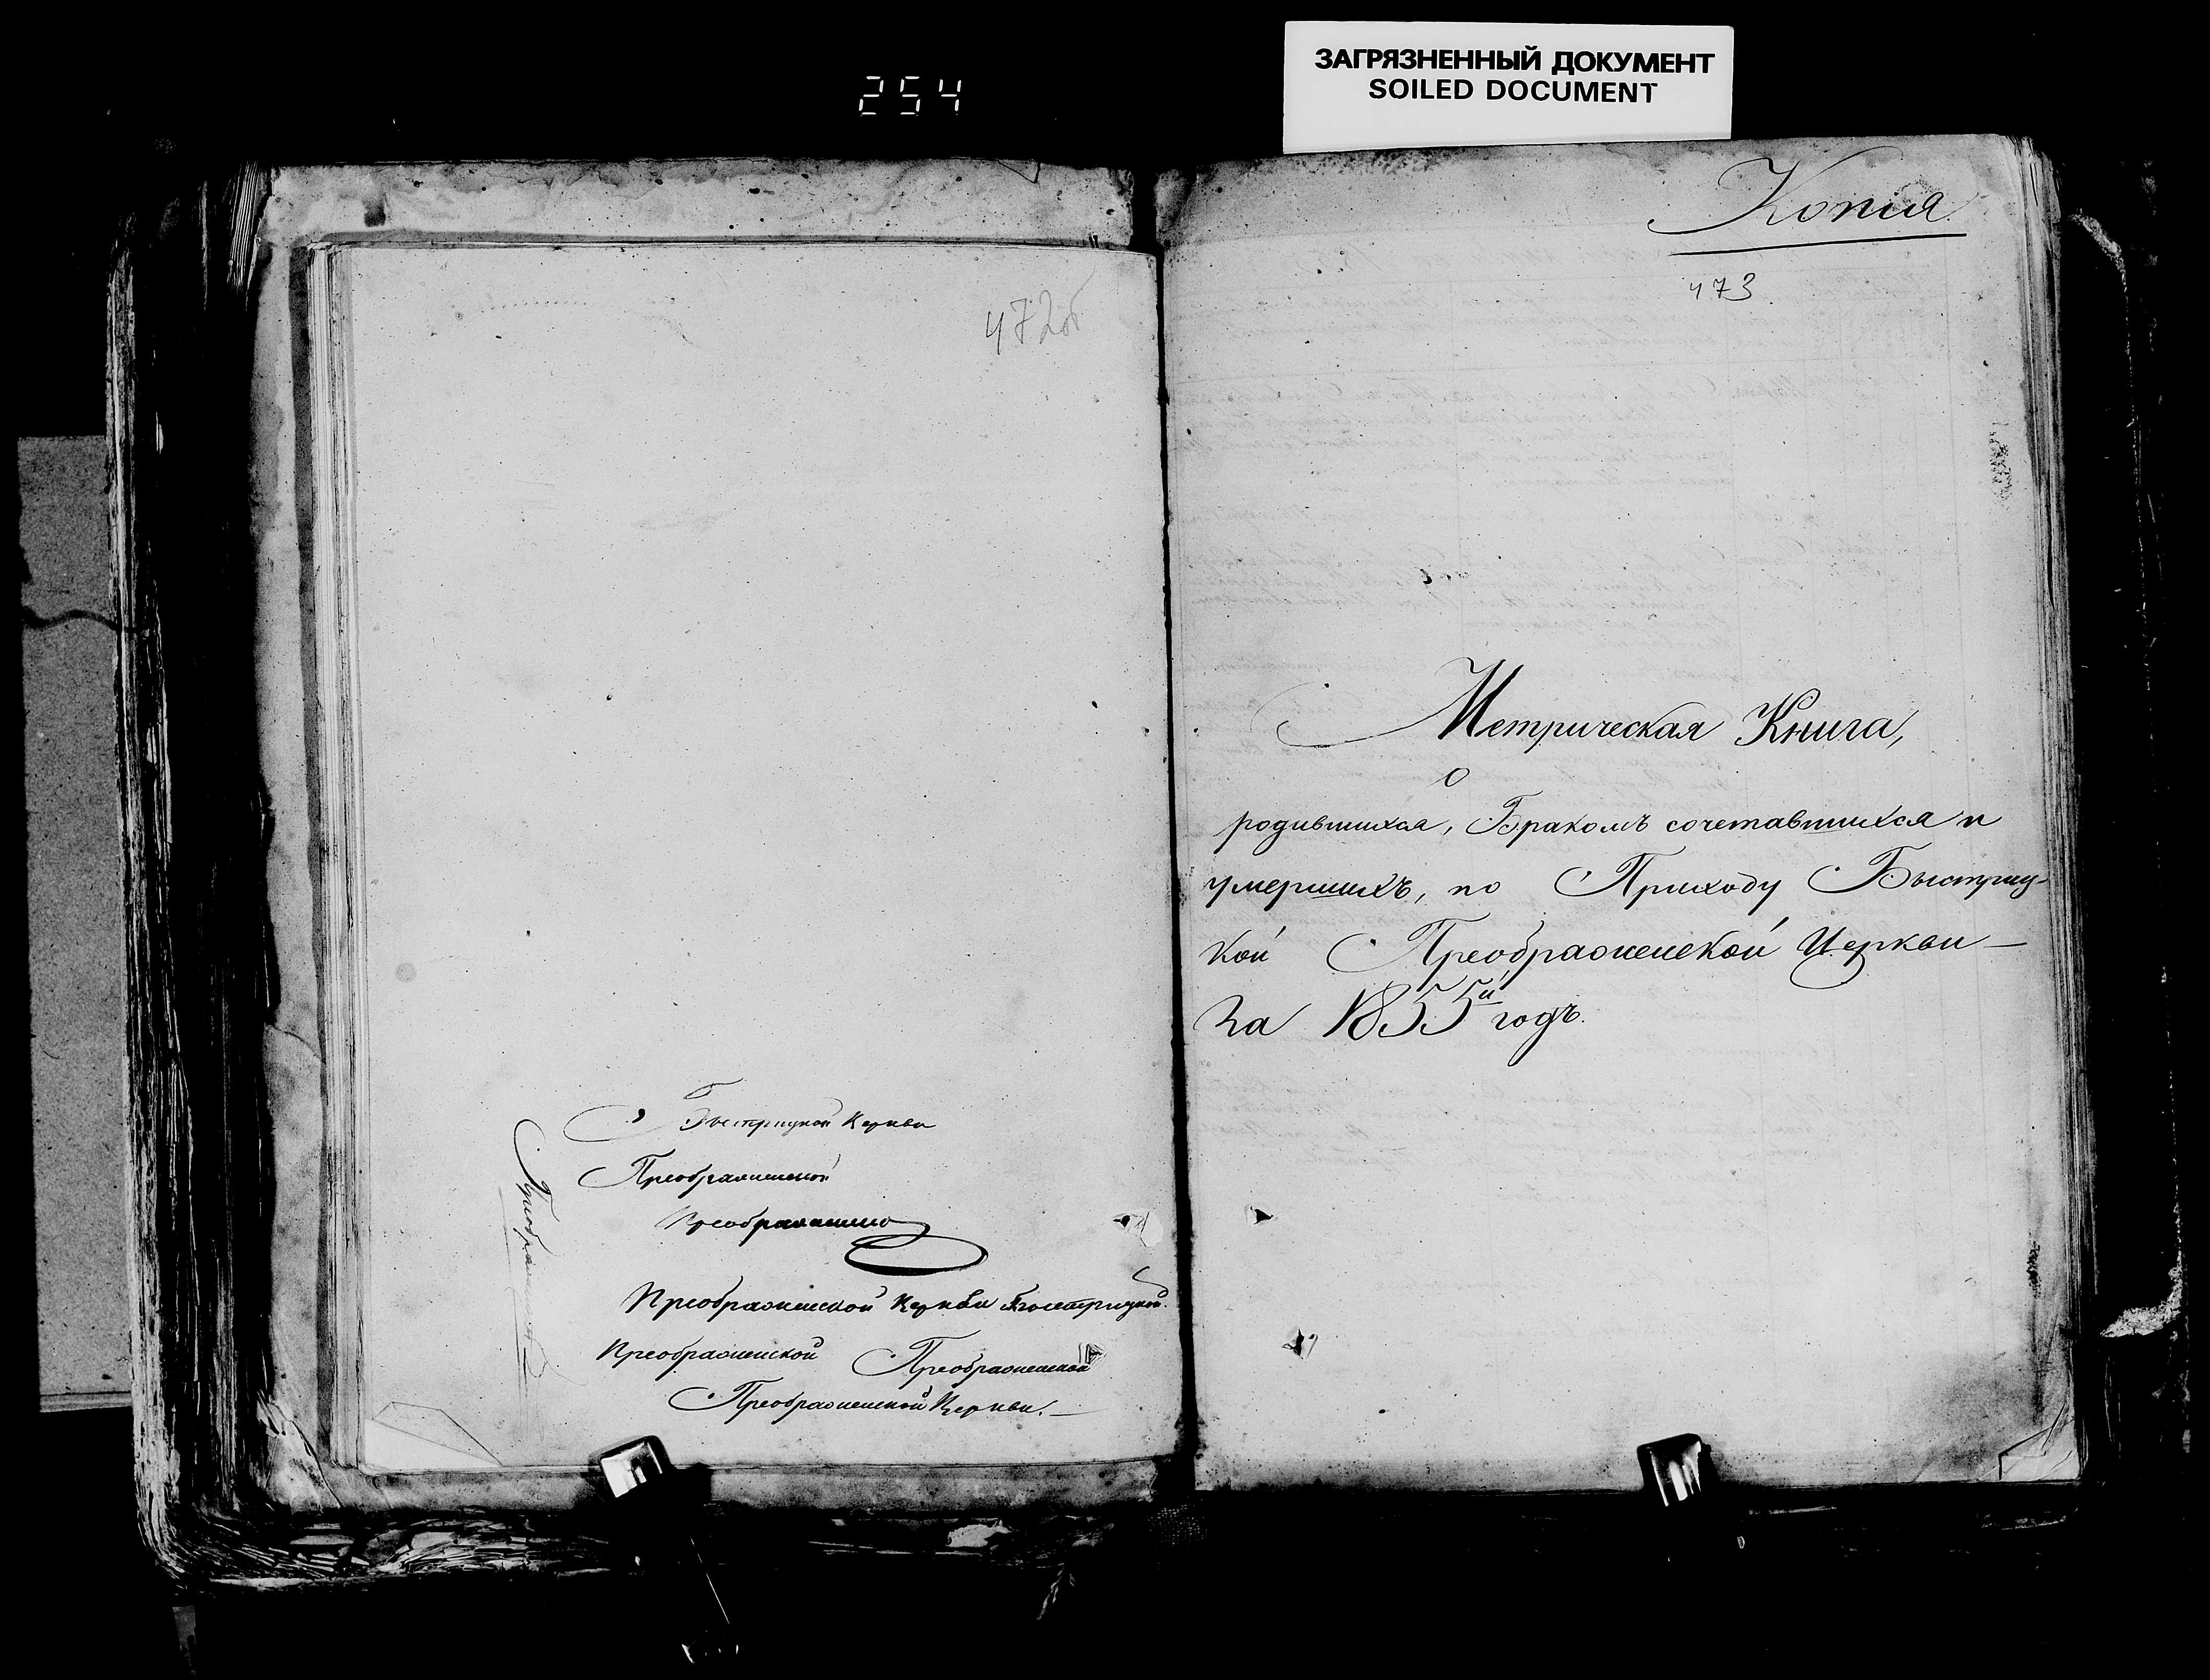 254
ЗАГРЯЗНЕННЫЙ ДОКУМЕНТ
SOILED DOCUMENT
472об
Быстрицкой Церкви
Преображенской
Преображенско
Преображенской Церкви Быстрицкой.
Преображенской Преображенской
Преображенской Церкви.
Копія
473
Метрическая Книга,
о
родившихся, Бракомъ сочетавшихся и
умершихъ, по Приходу Быстриц-
кой Преображенской Церкви —
За 1855й годъ.